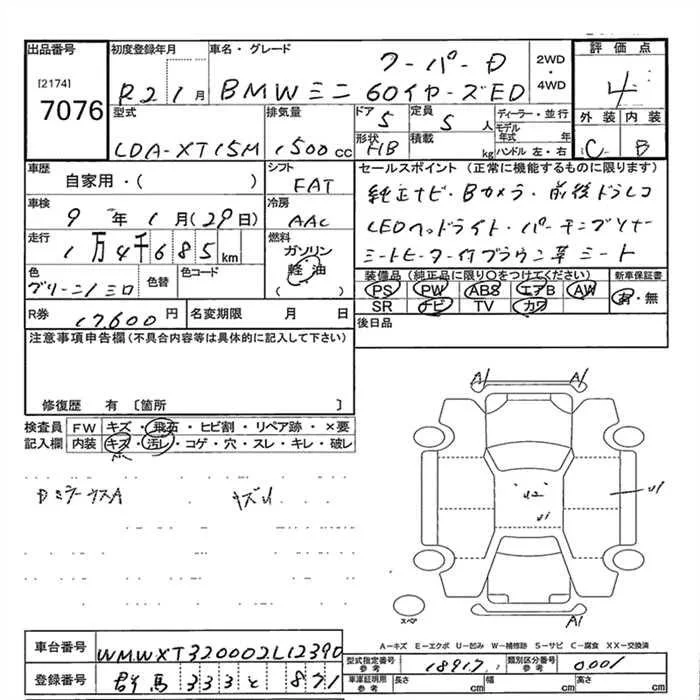 出品番号
[2174]
7076
初度登録年月
R2 1月
車名・グレード
クーパーD
BMWミニ 60イヤーズED
2WD
・
4WD
評価点
4
型式
LDA-XT15M
排気量
1500cc
ドア
5
形状
HB
定員
5人
積載
kg
ディーラー・並行
モデル年式 年
ハンドル 左・右
外装 内装
C B
車歴
自家用・( )
シフト
FAT
セールスポイント(正常に機能するものに限ります)
純正ナビ・Bカメラ・前後ドラレコ
LEDヘッドライト・パーキングソナー
シートヒーター付ブラウン革シート
車検
9年1月(29日)
冷房
AAC
走行
1万4千685km
燃料
ガソリン
軽油
( )
色
グリーン/ミロ
色替
色コード
装備品(純正品に限り○をつけてください)
PS PW ABS エアB AW
SR ナビ TV カワ
新車保証書
有・無
R券
17600円
名変期限 月 日
後日品
注意事項申告欄(不具合内容等は具体的に記入して下さい)
修復歴 有 〔箇所 〕
検査員記入欄
FW キズ・飛石・ヒビ割・リペア跡・×要
内装 キズ・汚レ・コゲ・穴・スレ・キレ・破レ
DミラーウスA キズU
A1 A1
U2
U1
U1
A1
スペア
A-キズ E-エクボ U-凹み W-補修跡 S-サビ C-腐食 XX-交換済
車台番号
WMWXT320002L12390
登録番号
群馬 333 と 871
型式指定番号
参考
18917
類別区分番号
参考
0001
車庫証明用
参考
長さ cm
幅 cm
高さ cm